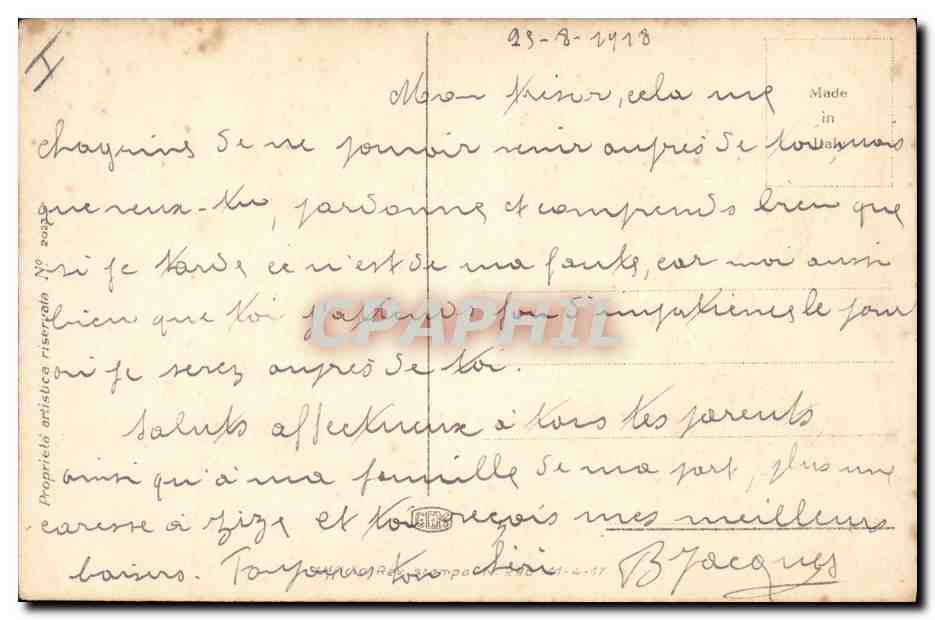 I
25-8-1918
Mon trésor, cela me
Made
in
Italy
chagrine de ne pouvoir venir auprès de toi, mais
que veux-tu, pardonne et comprends bien que
si je tarde ce n'est de ma faute, car moi aussi
bien que toi j'attends d'impatience le jour
où je serez auprès de toi.
Saluts affectueux à tous tes parents,
ainsi qu'à ma famille de ma part, plus une
caresse à Zize et toi reçois mes meilleurs
baisers. Toujours ton
B Jacques
Proprietà artistica riservata No
CPAPHIL